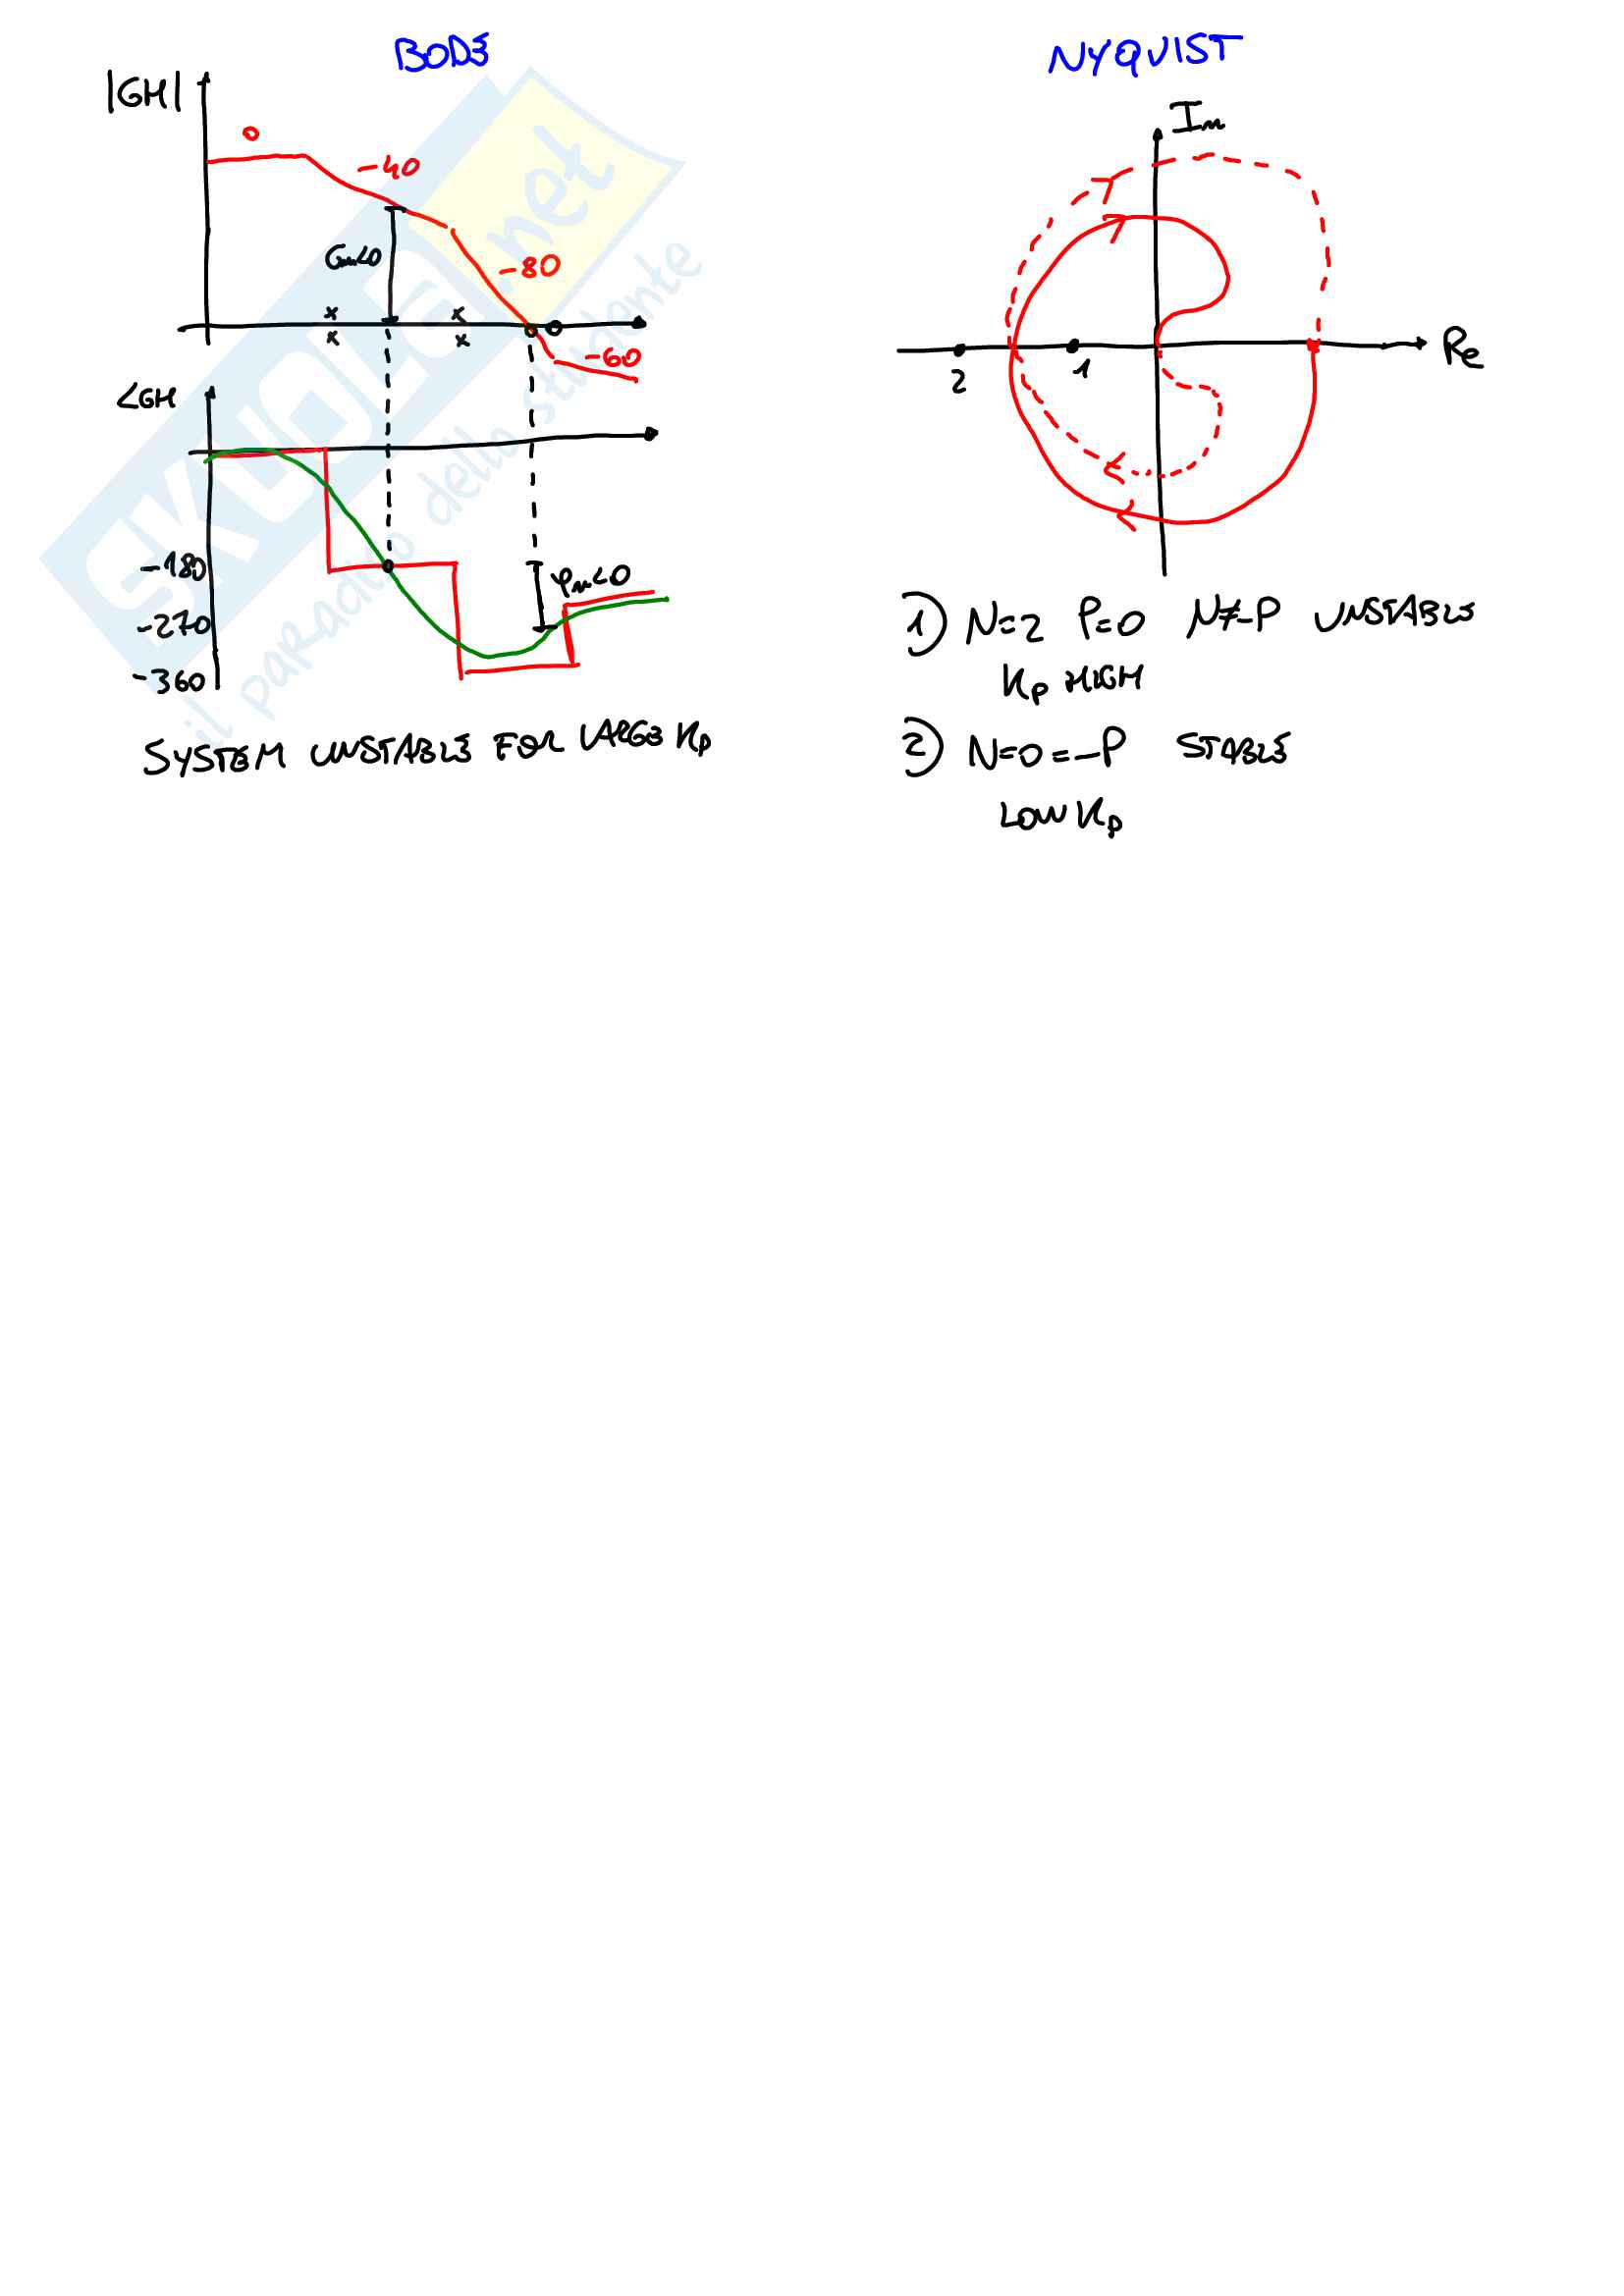 BODE
|GH|
0
-40
Gm<0
-80
-60
∠GH
-180
-270
-360
φm<0
SYSTEM UNSTABLE FOR LARGE Kp
NYQUIST
Im
Re
2
1
1) N=2 P=0 N≠-P UNSTABLE
Kp HIGH
2) N=0=-P STABLE
LOW Kp
SKUOLA.net
il paradiso dello studente